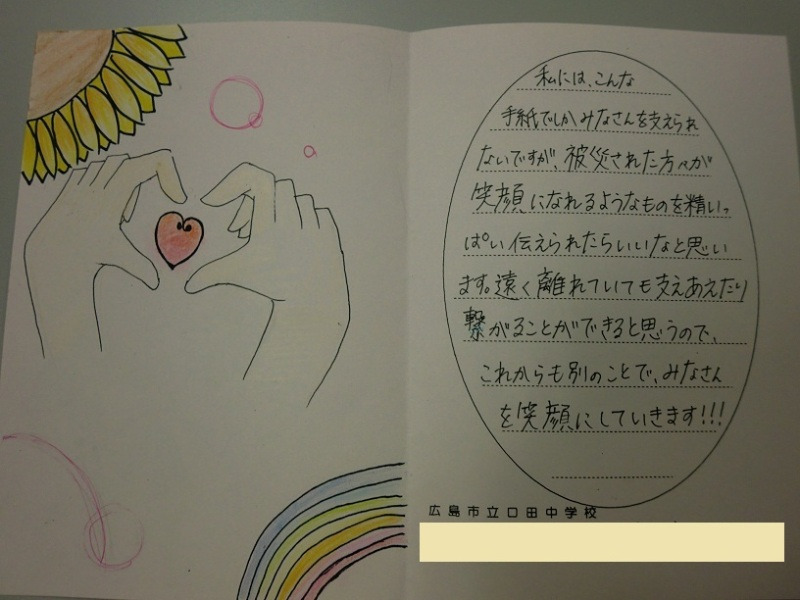 私には、こんな
手紙でしかみなさんを支えられ
ないですが、被災された方々が
笑顔になれるようなものを精いっ
ぱい伝えられたらいいなと思い
ます。遠く離れていても支えあえたり
繋がることができると思うので、
これからも別のことで、みなさん
を笑顔にしていきます!!!
広島市立口田中学校